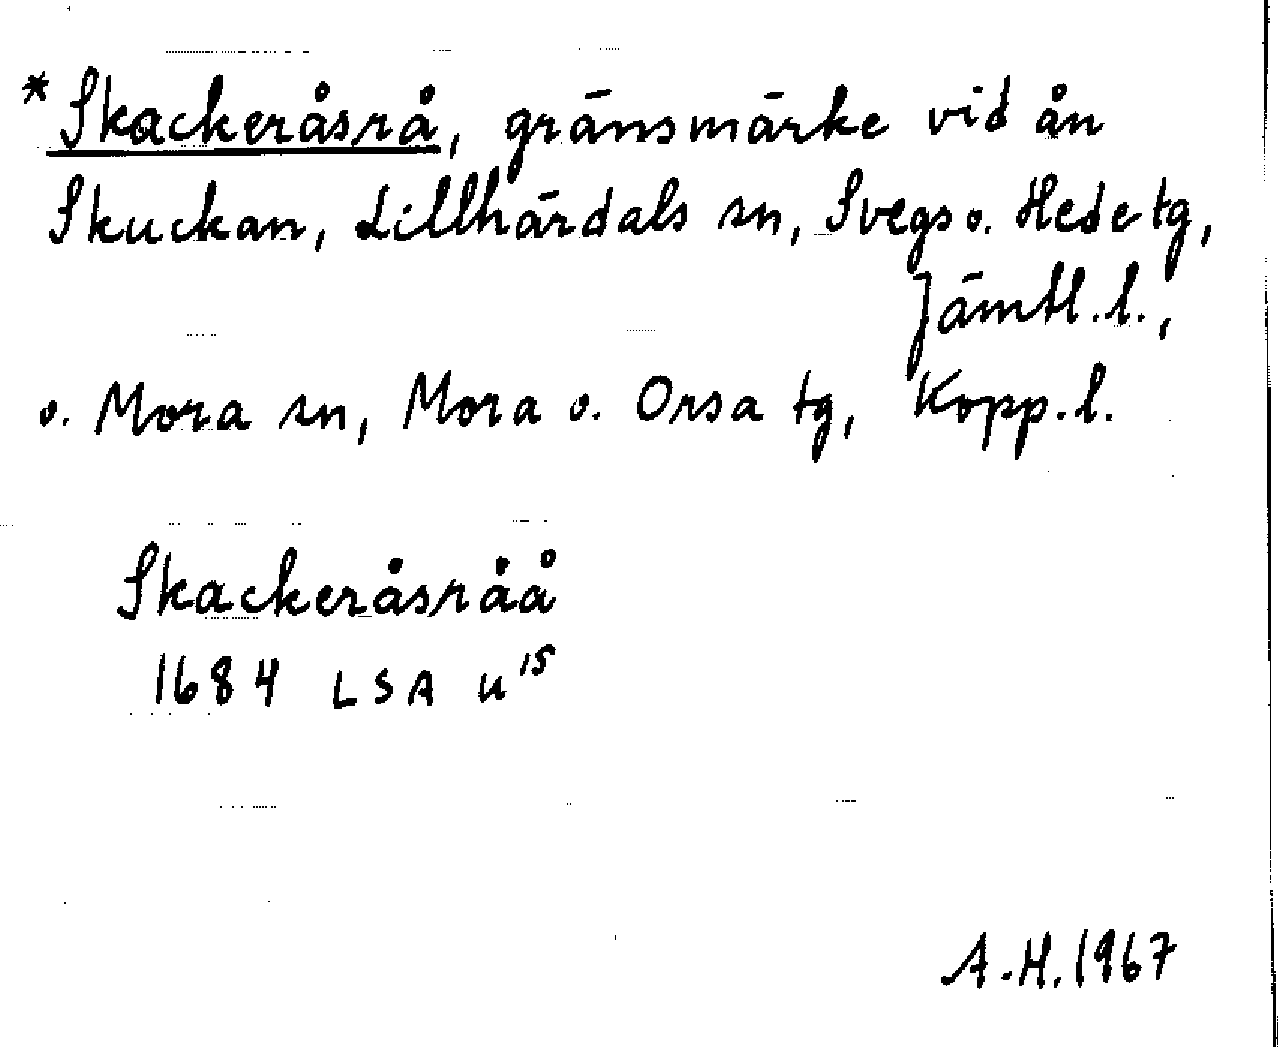 *Skackeråsrå, gränsmärke vid ån
Skuckan, Lillhärdals sn, Svegs o. Hede tg,
Jämtl.l.,
o. Mora sn, Mora o. Orsa tg, Kopp.l.
Skackeråsråå
1684 LSA U¹⁵
A.H. 1967